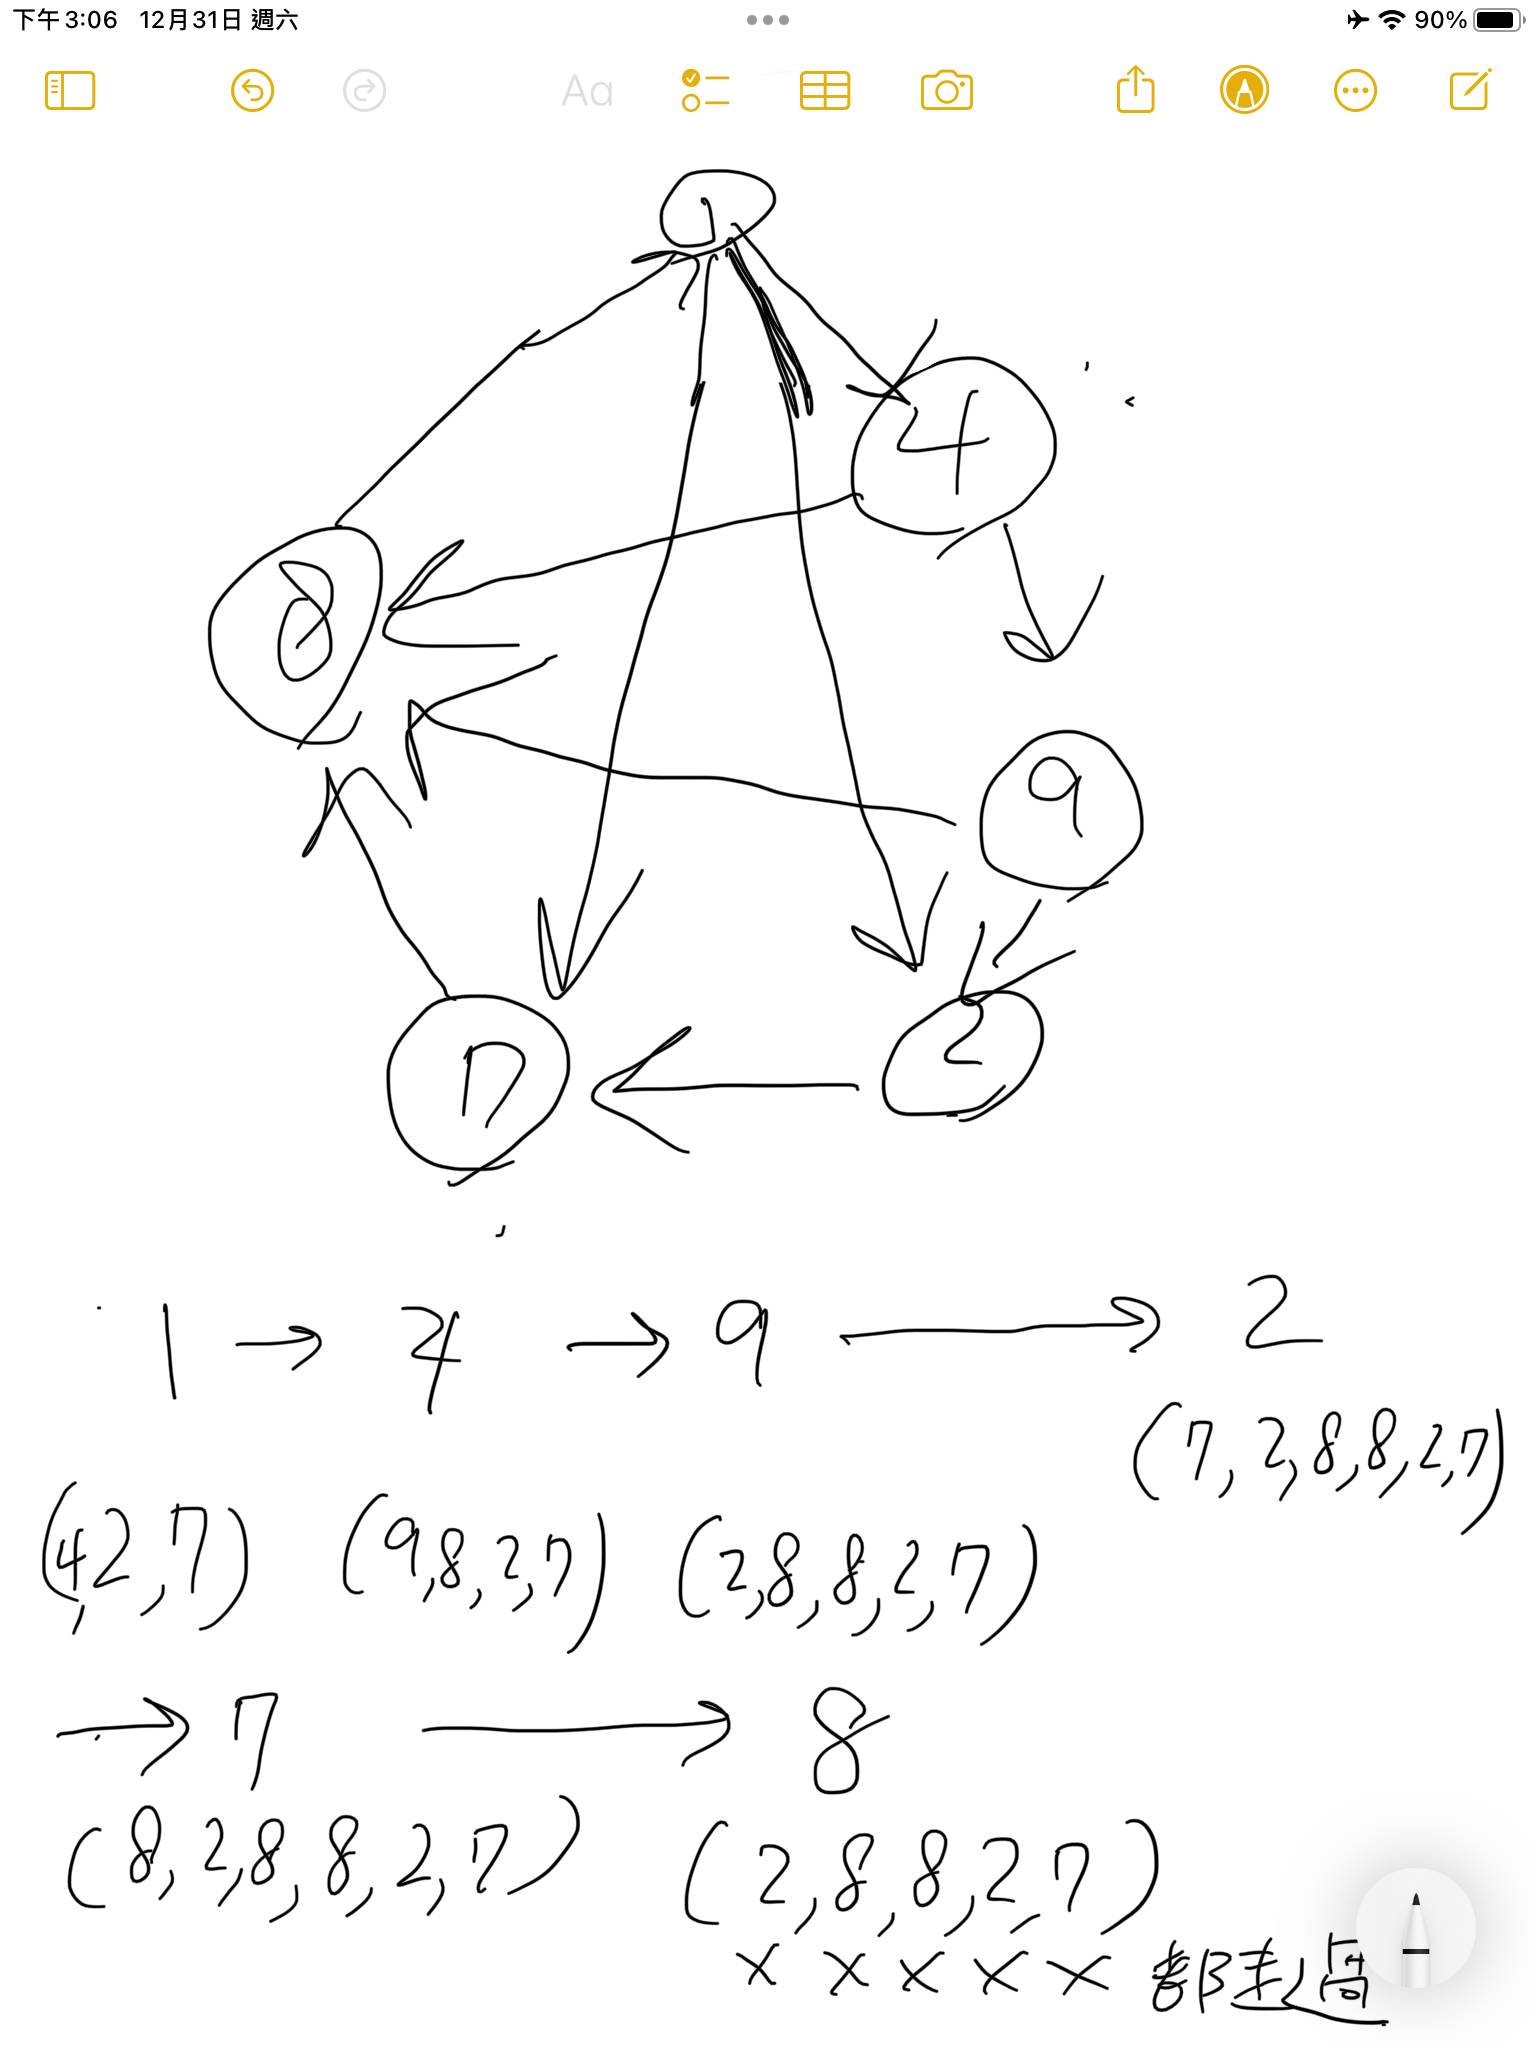 下午3:06 12月31日 週六
90%
Aa
1
4
8
9
7
2
1 → 4 → 9 → 2
(7, 2, 8, 8, 2, 7)
(4, 2, 7) (9, 8, 2, 7) (2, 8, 8, 2, 7)
→ 7 → 8
(8, 2, 8, 8, 2, 7) (2, 8, 8, 2, 7)
x x x x x 都走過